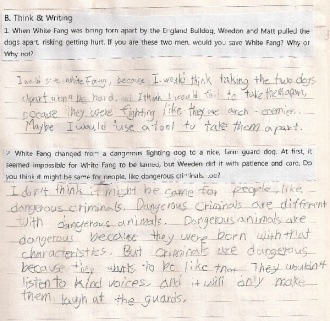 B. Think & Writing
1. When White Fang was being torn apart by the England Bulldog, Weedon and Matt pulled the
dogs apart, risking getting hurt. If you are these two men, would you save White Fang? Why or
Why not?
I would save white Fang, because I would think taking the two dogs
apart would be hard. I think I would fail to take them apart,
because they were fighting like they're arch-enemies.
Maybe I would use a tool to take them apart.
2. White Fang changed from a dangerous fighting dog to a nice, farm guard dog. At first, it
seemed impossible for White Fang to be tamed, but Weeden did it with patience and care. Do
you think it might be same for people, like dangerous criminals, too?
I don't think it might be same for people, like
dangerous criminals. Dangerous criminals are different
with dangerous animals. Dangerous animals are
dangerous because they were born with that
characteristics. But criminals are dangerous
because they wants to be like that. They wouldn't
listen to kind voices and it will only make
them laugh at the guards.